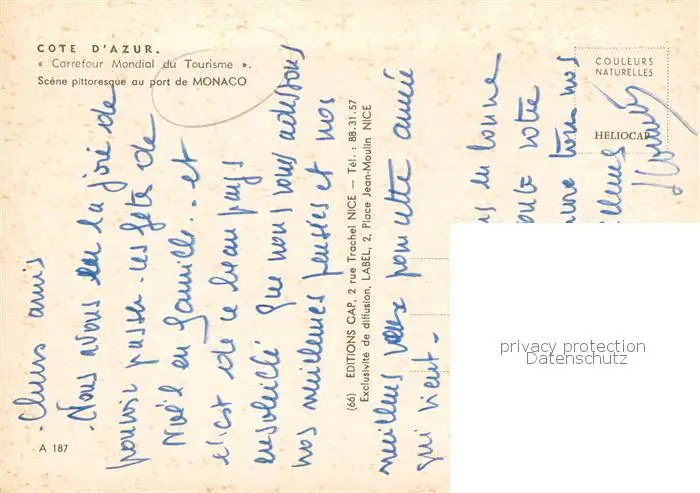 COTE D'AZUR.
« Carrefour Mondial du Tourisme ».
Scène pittoresque au port de MONACO
A 187
(66) EDITIONS CAP, 2 rue Trachel NICE — Tél. : 88.31.57
Exclusivité de diffusion, LABEL, 2, Place Jean-Moulin NICE
COULEURS
NATURELLES
HELIOCAP
Chers amis
Nous avons eu la joie de
pouvoir passer ces fêtes de
Noël en famille - et
c'est de ce beau pays
ensoleillé que nous vous adressons
nos meilleures pensées et nos
meilleurs vœux pour cette année
qui vient -
en bonne
toute votre
tous nos
privacy protection
Datenschutz